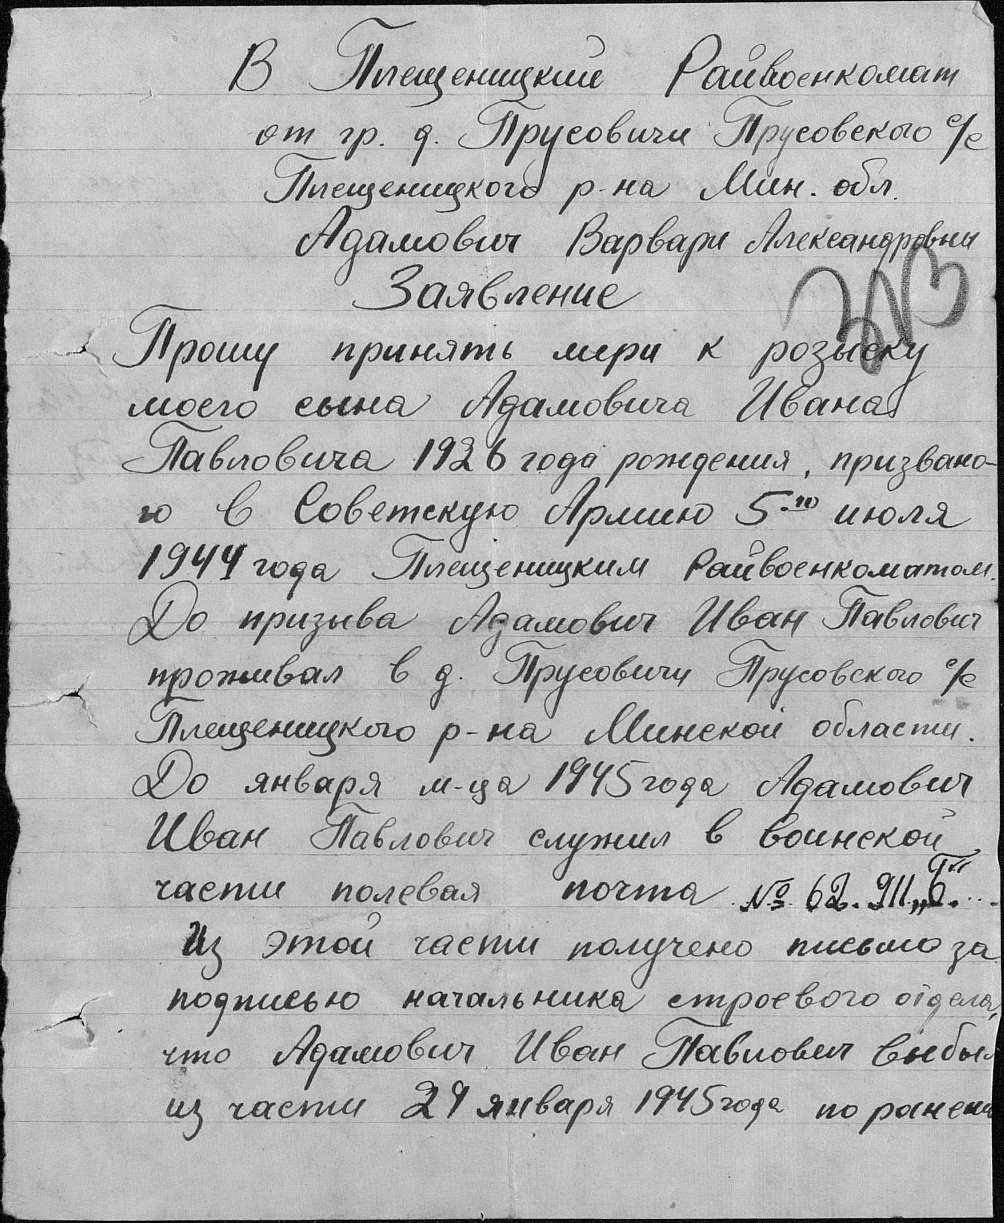 В Плещеницкий Райвоенкомат
от гр. д. Прусовичи Прусовского с/с
Плещеницкого р-на Мин. обл.
Адамович Варвары Александровны
Заявление
Прошу принять меры к розыску
моего сына Адамовича Ивана
Павловича 1926 года рождения, призвано-
го в Советскую Армию 5-го июля
1944 года Плещеницким Райвоенкоматом.
До призыва Адамович Иван Павлович
проживал в д. Прусовичи Прусовского с/с
Плещеницкого р-на Минской области.
До января м-ца 1945 года Адамович
Иван Павлович служил в воинской
части полевая почта № 62.911 „Б“
Из этой части получено письмо за
подписью начальника строевого отдела,
что Адамович Иван Павлович выбыл
из части 24 января 1945 года по ранени